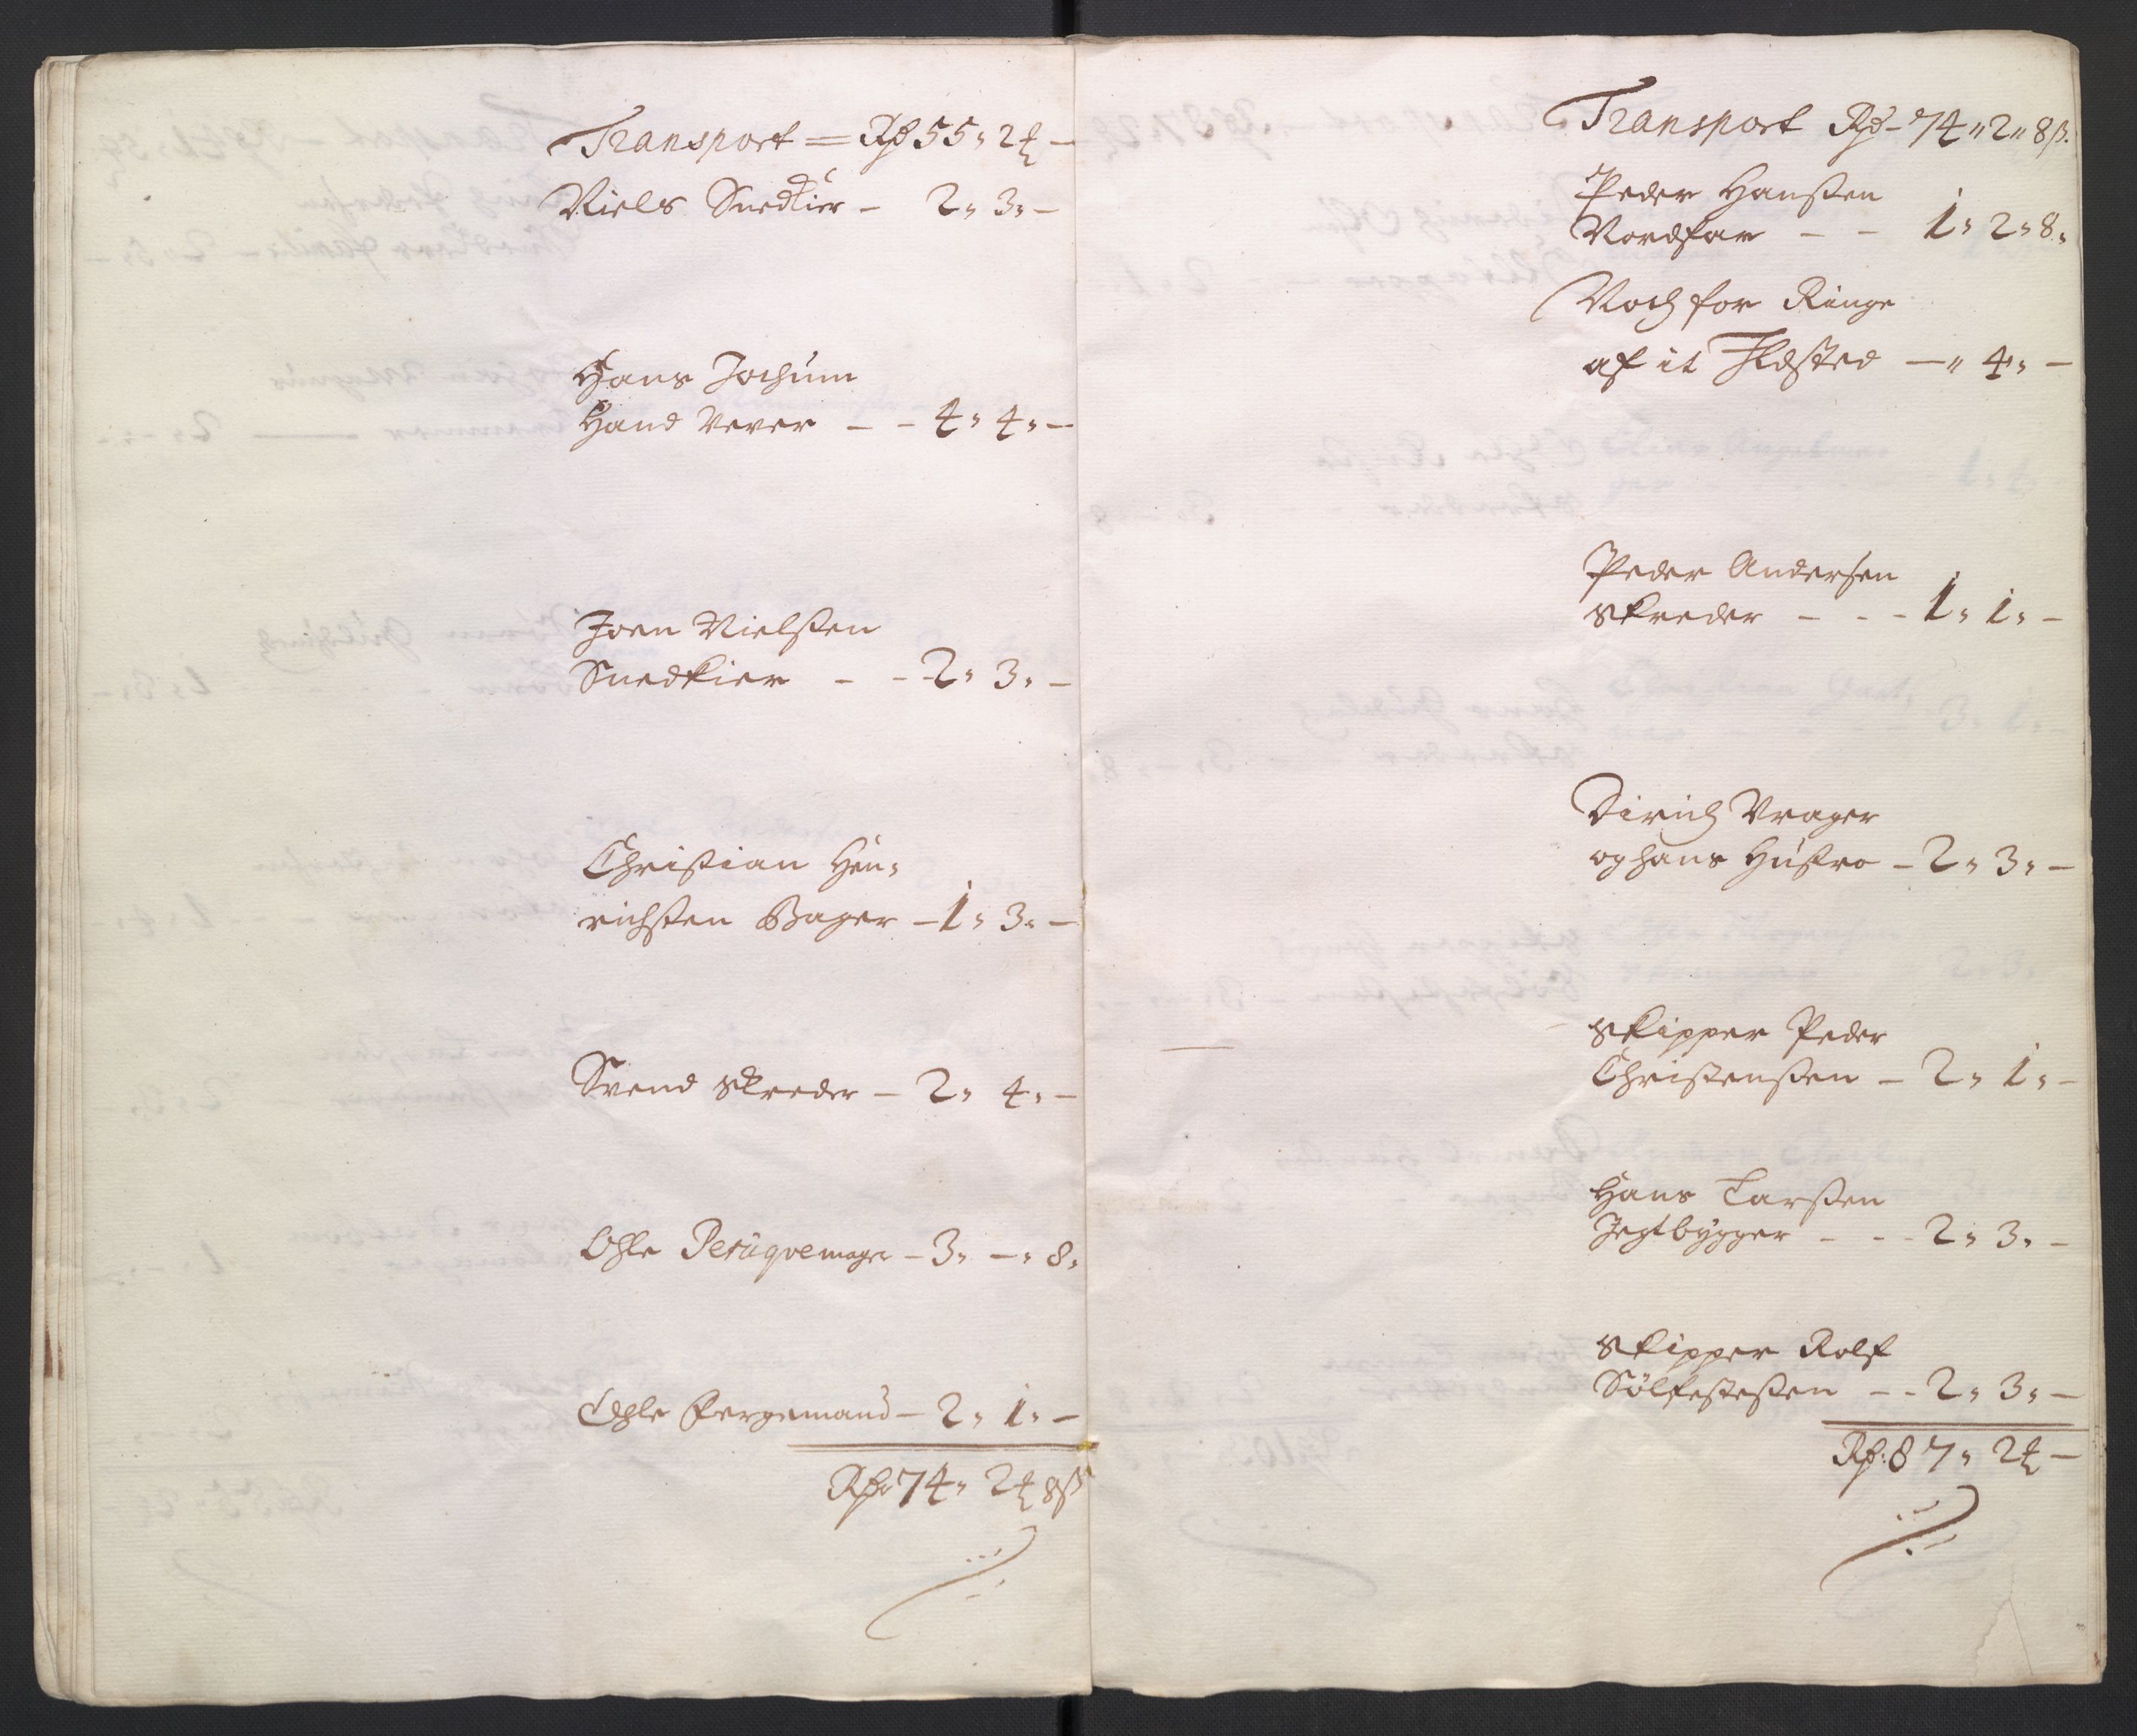 Transport = Rd 55 " 2 ¼ -
Niels Snedkier - 2 " 3 " -
Hans Jochum
Hand Vever - - 4 " 4 " -
Joen Nielssen
Snedkier - - - 2 " 3 " -
Christian Hen-
richsen Bager - 1 " 3 " -
Svend skreder - 2 " 4 " -
Ohle Perüqvemager - 3 " - " 8 "
Ohle fergemand - 2 " 1 " -
Rd 74 " 2 ¼ 8 ß
Transport Rd - 74 " 2 " 8 ß.
Peder Hanssen
Nordfar - - 1 " 2 " 8 "
Noch for Ringe
af it Ildsted - " 4 " -
Peder Andersen
skreder - - - 1 " 1 " -
Dirich Vrager
og hans Hustro - 2 " 3 " -
skipper Peder
Christenssen - 2 " 1 " -
Hans Larssen
Jegtbygger - - - 2 " 3 " -
skipper Rolf
Sölfestessen - - 2 " 3 " -
Rd: 87 " 2 ¼ -